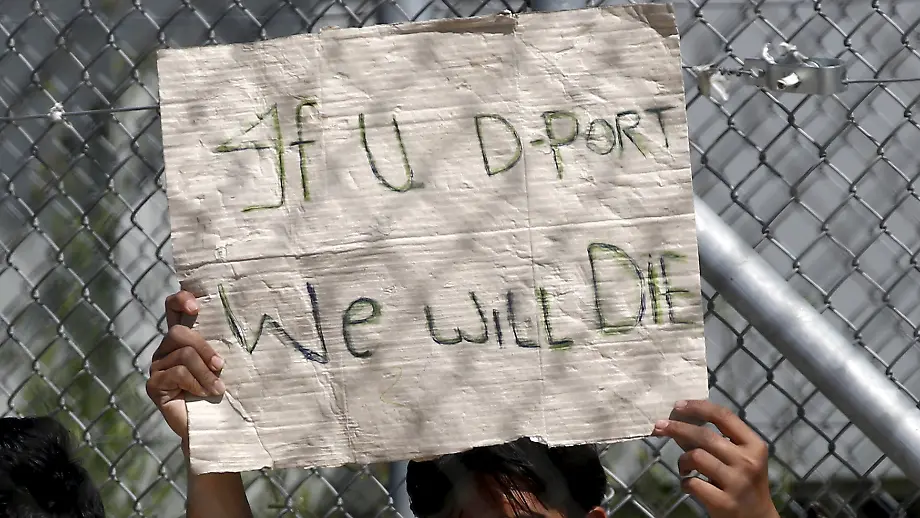 If U D-PORT
We will DiE